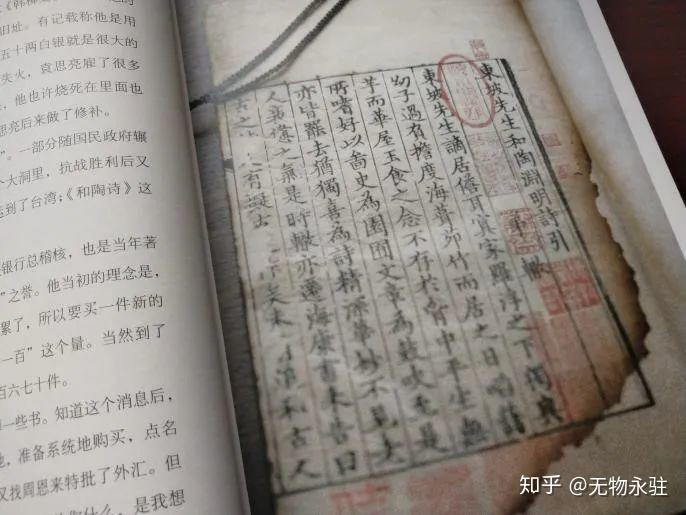 旧址。有记载称他是用
五十两白银就是很大的
失火，袁思亮雇了很多
，他也许烧死在里面也
思亮后来做了修补。
”。一部分随国民政府辗
个大洞里，抗战胜利后又
运到了台湾；《和陶诗》这
银行总稽核，也是当年著
”之誉。他当初的理念是，
累了，所以要买一件新的
一百”这个量。当然到了
百六七十件。
一些书。知道这个消息后，
地，准备系统地购买，点名
又找周恩来特批了外汇。但
什么，是我想
東坡先生和陶淵明詩引
弟 轍
東坡先生謫居儋耳寘家羅浮之下獨與
幼子過負擔度海葺茆竹而居之日啗藷
芋而華屋玉食之念不存於胷中平生無
所嗜好以圖史為園囿文章為鼓吹至是
亦皆罷去猶獨喜為詩精深華妙不見老
人衰憊之氣是時轍亦遷海康書來告曰
古之 人有擬古 作矣未有追和古人
知乎 @无物永驻